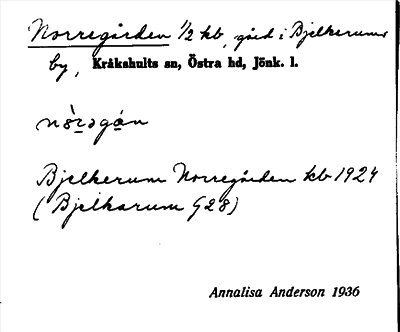 Norregården 1/2 kb, gård i Bjelkerums
by, Kråkshults sn, Östra hd, Jönk. l.
nòrəgán
Bjelkerum Norregården kb 1924
(Bjelkarum G28)
Annalisa Anderson 1936